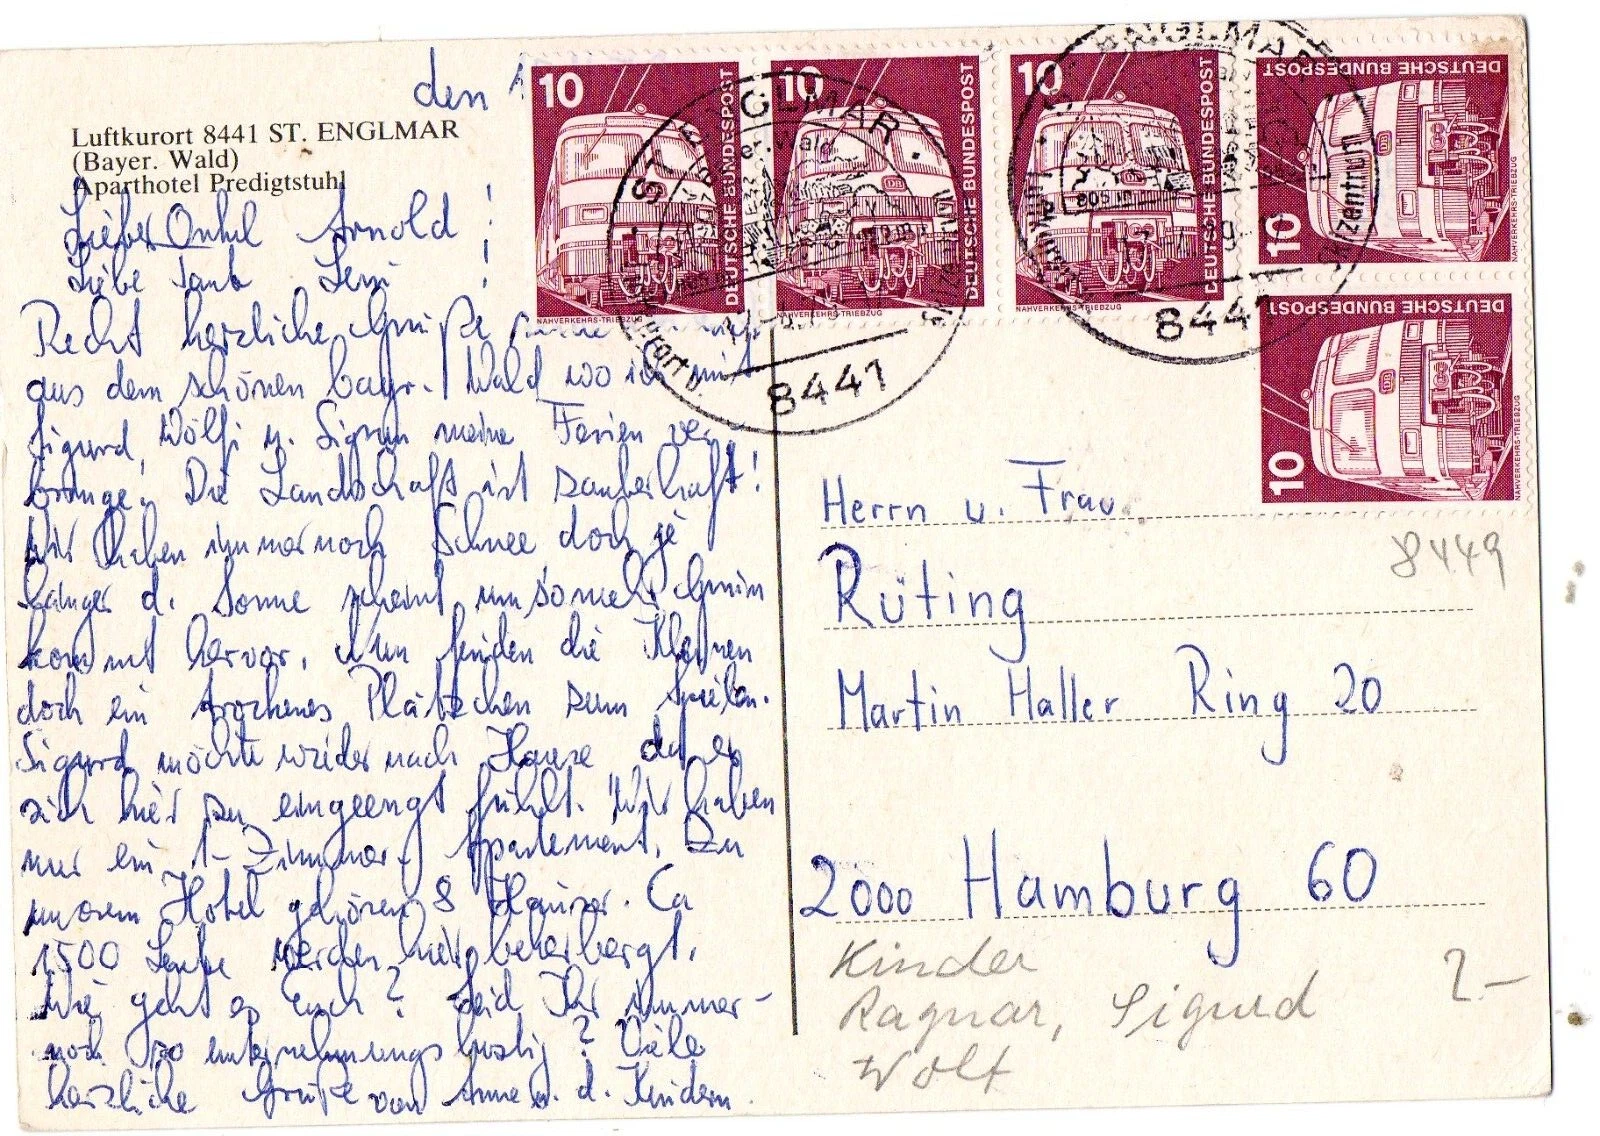 den
Luftkurort 8441 ST. ENGLMAR
(Bayer. Wald)
Aparthotel Predigtstuhl
Lieber Onkel Arnold!
Liebe Tante Leni!
Recht herzliche Grüße
aus dem schönen bayr. Wald wo ich mit
Sigurd, Wölfi u. Sigrun meine Ferien ver
bringe. Die Landschaft ist zauberhaft!
Wir haben immer noch Schnee doch je
länger d. Sonne scheint umsomehr Grün
kommt hervor. Nun finden die Kleinen
doch ein trockenes Plätzchen zum Spielen.
Sigurd möchte wieder nach Hause da er
sich hier zu eingeengt fühlt. Wir haben
nur ein 1-Zimmer-Apartement. Zu
unserem Hotel gehören 8 Häuser. Ca
1500 Leute werden hier beherbergt.
Wie geht es Euch? Seid Ihr immer-
noch so unternehmungslustig? Viele
herzliche Grüße von Anne u. d. Kindern.
10
DEUTSCHE BUNDESPOST
NAHVERKEHRS-TRIEBZUG
10
DEUTSCHE BUNDESPOST
NAHVERKEHRS-TRIEBZUG
10
DEUTSCHE BUNDESPOST
NAHVERKEHRS-TRIEBZUG
10
DEUTSCHE BUNDESPOST
NAHVERKEHRS-TRIEBZUG
10
DEUTSCHE BUNDESPOST
NAHVERKEHRS-TRIEBZUG
ST. ENGLMAR
8441
ENGLMAR
8441
Herrn u. Frau
8449
Rüting
Martin Haller Ring 20
2000 Hamburg 60
Kinder
Ragnar, Sigurd
Wolf
2-